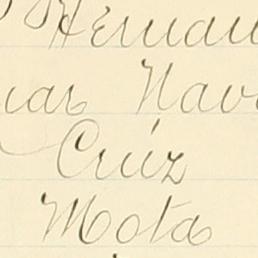 Hernan
uar Nava
Cruíz
Mota